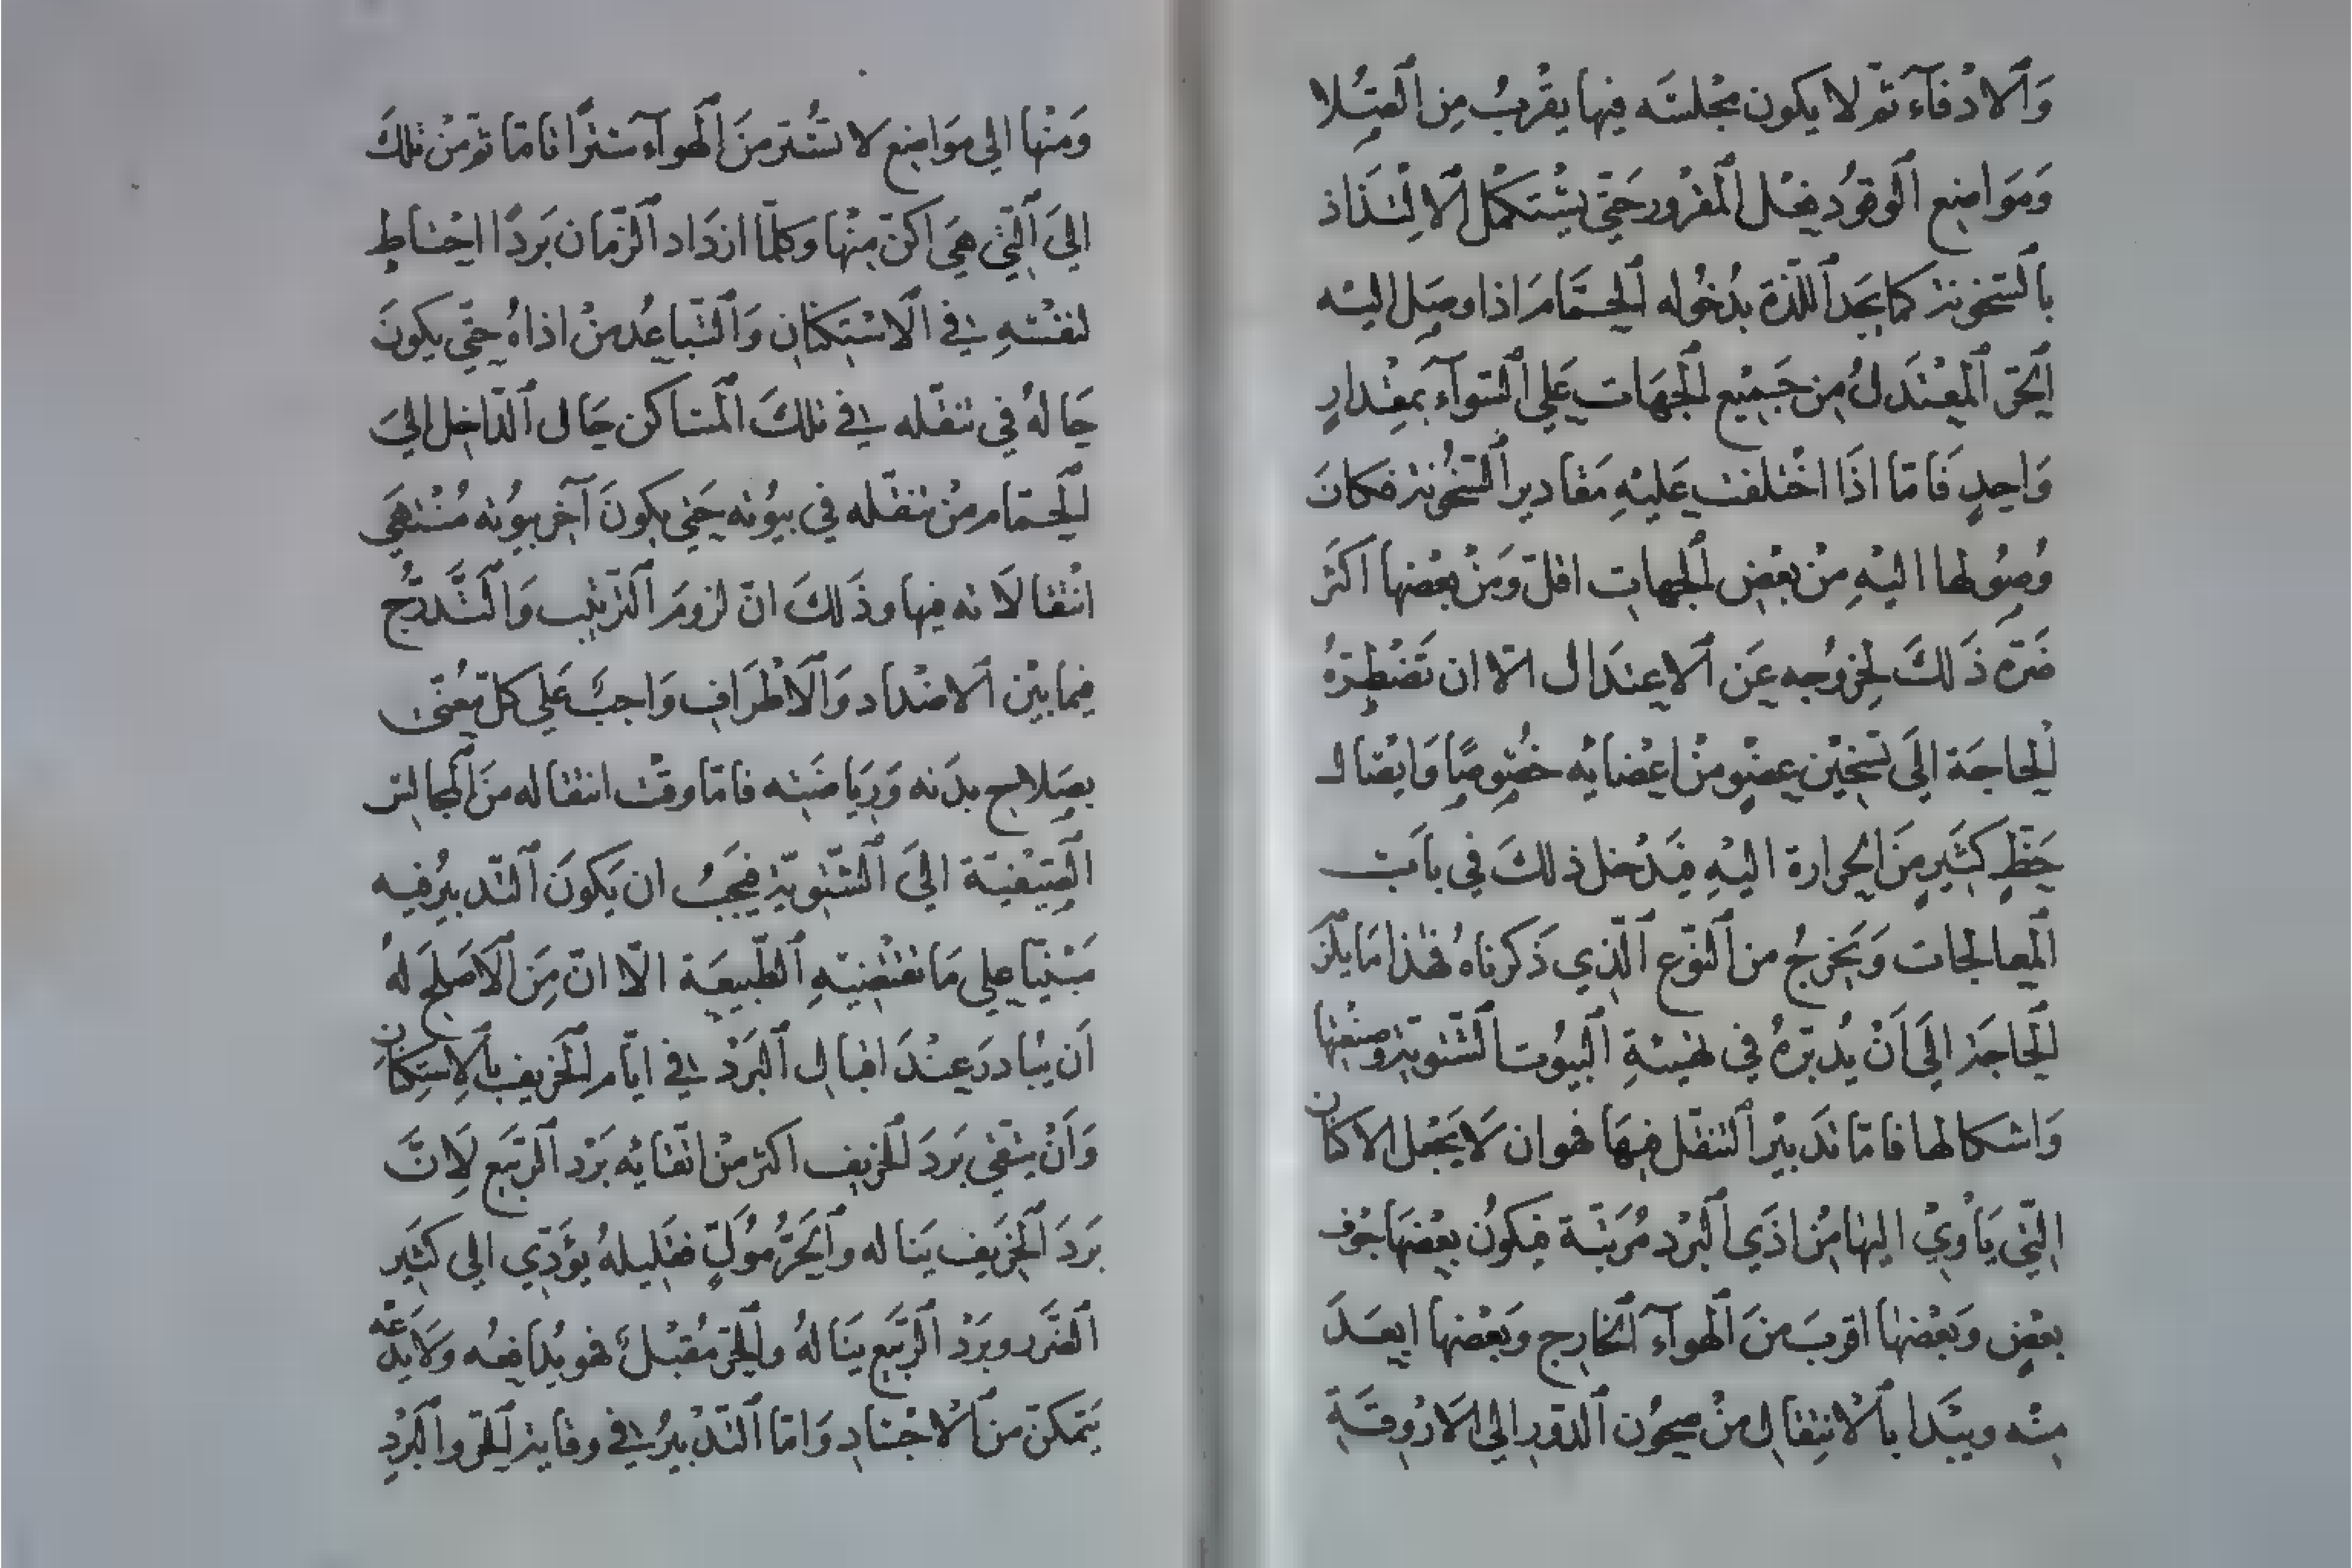 وَالادْفآء ثمّ لا يكون مجْلسَه فيها يقْربُ مِن الصِّلا
وَمَوَاضِع الوقوُد فِعْل المقْرور حَتّي يسْتكمْل الالِتذاذ
بالسّخونة كما يجَد اللّذة بدُخوُله الحمّامَ اذا وصَل اليْه
الحّر المعْتَدلُ مِن جَميْع الجهَات عَلي السّوآء بمقْدارٍ
وَاحِدٍ فَامّا اذَا اخْتلفت عَليْهِ مَقاديِر السّخوُنة فكانَ
وُصِوُلها اليْهِ مِنْ بعْضِ الجهاتِ اقلّ وَمنْ بعْضها اكثَر
ضَرّه ذَلكَ لخروُجه عَن الاعتدَال الاّ ان تَضْطرّهُ
الحاجَة الَي تسْخيْن عضْوٍ منْ اعْضايُه خصُوصًا وَايْصال
حَظّ كثَيرٍ مِنَ الحرارة اليْهِ فيَدْخل ذلكَ في بَابِ
المعالجات وَيَخرجُ من النّوْع الّذي ذَكرناهُ فهَذا مَا يلزَم
الحَاجَة الَي أنْ يُدبّرهُ في هَيئةِ البيُوت الشّتويّة وصنْعتِها
وَاشكالها فامّا تَدبيْر التنقّل فيهَا فهوان لَا يَجْعل الاكنان
التّي يَأوْي اليْها مِنْ اذَي البَرْد مُرَتبّة فيكوُن بعْضهَا جوْف
بعْضٍ وَبَعْضهْا اقربَ منَ الهوآء الخارج وَبعْضها ابعَدَ
منْه ويبْتَدا بالانتِقال منْ صحُون الدّور الي الارْوقَةِ
وَمنْها الي مَوَاضِع لا تسْتُر منَ الهَوآء سَتْرًا تامّا ثمّ منْ تلكَ
اليَ التّي هيَ اكنّ مِنْها وَكلمّا ازدَاد الزّمان بَردًا احْتاط
لنفْسْهِ في الاسْتكنَانِ وَالتّباعُد منْ اذاهُ حتّي يكونَ
حَالهُ في تنقّله في تلكَ المَساكن حَال الدّاخل اليَ
الحَمّام منْ تنقّله في بيُوته حَتي يكونَ آخر بيوُته مُنتهَي
انْتقالَاته فيها وذَلكَ انّ لزومَ الترّتيْب وَالتَّدرّج
فيمابيْن الاضْداد وَالَاطْرَافِ وَاجبٌ عَلي كلّ معْني
بصَلاح بدَنه وَريَاضَتِه فامّا وقْت انتقاله منَ المجالس
الصَيْفيّة اليَ الشّتويّة فيَجبُ ان يَكونَ التّدبيرُ فيه
مَبْنيّا علي مَا تقتْضيْهِ الطّبيعَة الّا انّ مِنَ الَاصْلَح لهُ
اَن يبُادرَ عنْدَ اقبال البَرْد في ايّام الخَريف بالاسِتكنان
وَاَنْ يتّقي بَردَ الخريف اكثر منْ اتّقايُه بَرْد الرّبيَع لَانَّ
بَردَ الخَريف يَنالهُ وَالحَرُّ مُوَلٍّ فقليلهُ يؤدّي الي كثَير
الضَّرر وبَرْد الرّبيَع يَنالهُ والحرّ مُقبْلٌ فهو يُدافعُه وَلا يدَعه
يَتمكنّ منَ الاجْساد وَامّا التّدْبيرُ في وقاية الحرّ والبَرْدِ